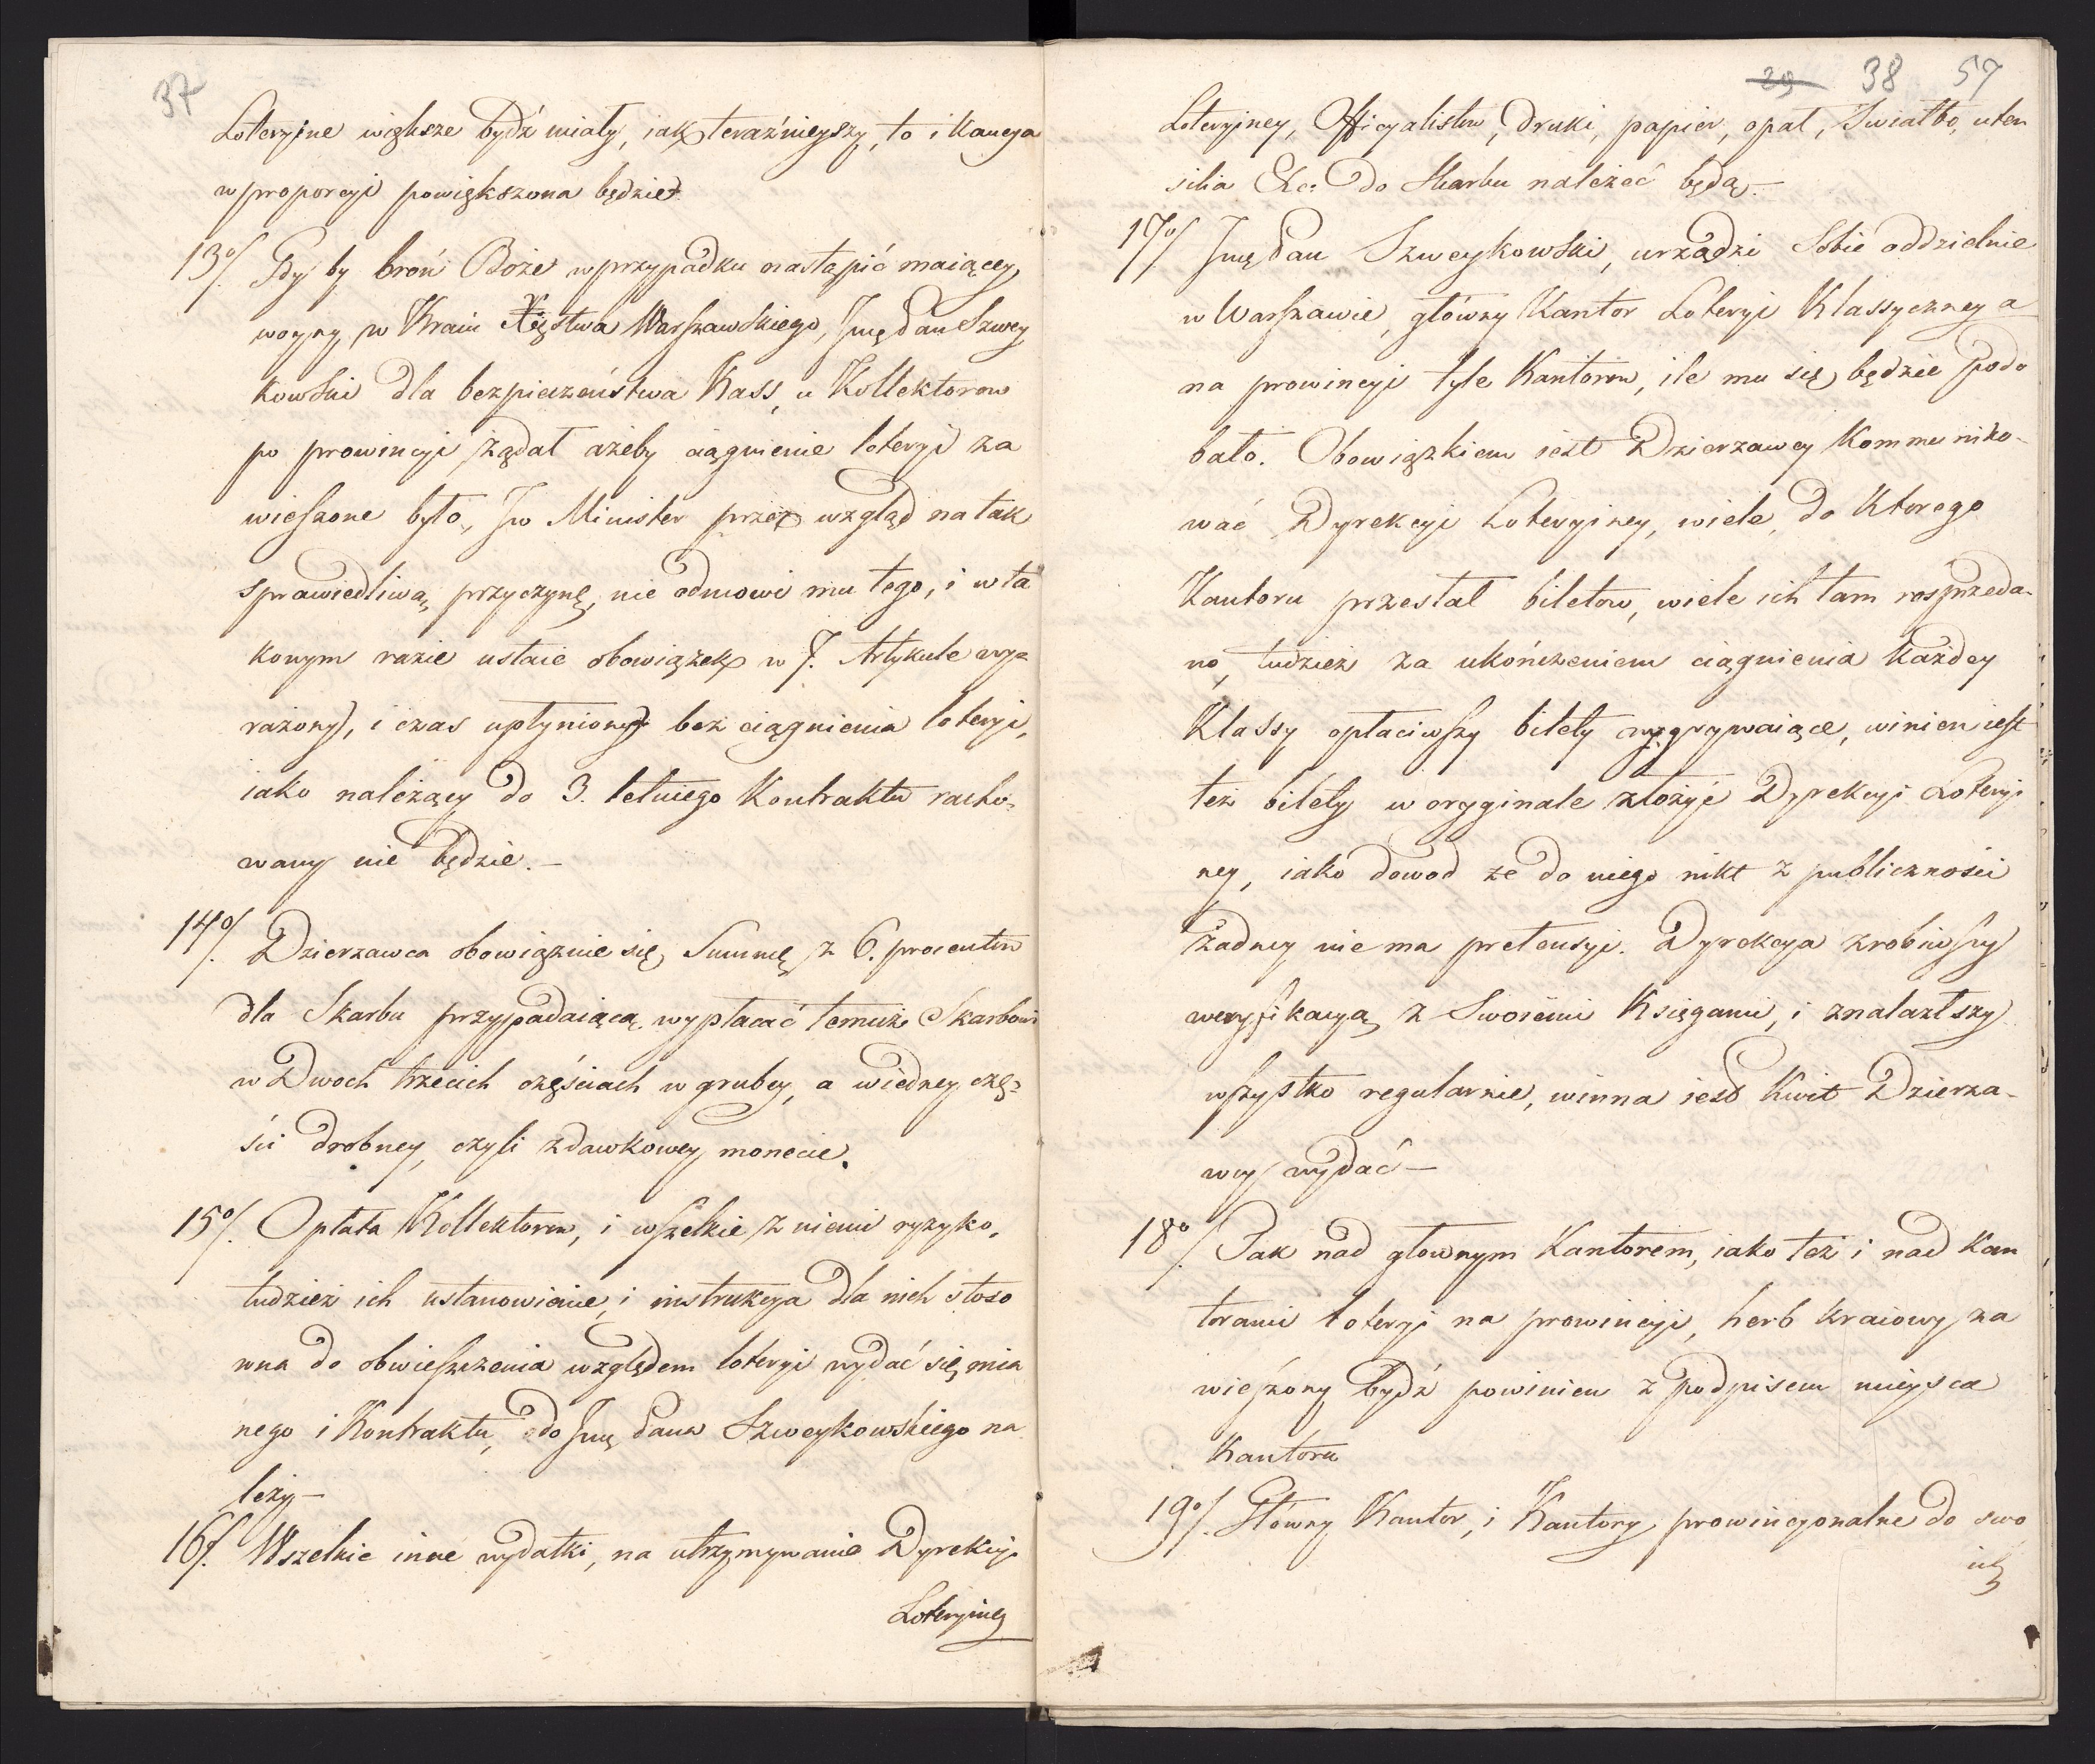 37
Loteryine większe bydź miały, iak teraźnieyszy, to i Kaucya
w proporcyi powiększona będzie.
13º/. Gdy by broń Boże w przypadku nastąpić maiącey
woyny w Kraiu Xięstwa Warszawskiego, Jmę Pan Szwey
kowski dla bezpieczeństwa Kass, u Kollektorow
po prowincyi żądał ażeby ciągnienie loteryi za
wieszone było, Jw Minister przez wzgląd na tak
sprawiedliwą przyczynę, nie odmowi mu tego, i w ta
konym razie ustaie obowiązek w 7. Artykule wy=
rażony, i czas upłyniony bez ciągnienia loteryi,
iako należący do 3. letniego Kontraktu racho=
wany nie będzie. —
14º/. Dzierzawca obowiązuie się Summę z 6. procentów
dla Skarbu przypadaiącą wypłacać temuż Skarbowi
w Dwoch trzecich częściach w grubey, a wiedney czę=
ści drobney, czyli zdawkowey monecie.
15º/. Opłata Kollektorow, i wszelkie z niemi ryzyko,
tudzież ich ustanowienie, i instrukcya dla nich stoso
wna do obwieszczenia względem loteryi wydać się mia
nego i Kontraktu, do Jmę Pana Szweykowskiego na
leży —
16/. Wszelkie inne wydatki, na utrzymywanie Dyrekcyi
Loteryiney
29 38 57
Loteryiney, Officyalistow, Druki, papier, opał, Swiatło, uten
silia &c: Do Skarbu należeć będą. —
17º/. Jmę Pan Szweykowski, urządzi Sobie oddzielnie
w Warszawie, główny Kantor Loteryi Klassyczney a
na prowincyi tyle Kantorow, ile mu się będzie podo
bało. Obowiązkiem iest Dzierzawcy Kommuniko-
wać Dyrekcyi Loteryiney, wiele, do Ktorego
Kantoru przesłał biletow, wiele ich tam rosprzeda-
no, tudzież za ukończeniem ciągnienia Każdey
Klassy opłaciwszy bilety wygrywaiące, winien iest
też bilety w oryginale złożyć Dyrekcyi Loteryi
ney, iako dowod że do niego nikt z publiczności
żadney nie ma pretensyi. Dyrekcya zrobiwszy
weryfikacyą z Swoiemi Księgami, i znalazłszy
wszystko regularnie, winna iest Kwit Dzierza-
wcy wydać —
18º/. Jak nad głownym Kantorem, iako też i nad Kan
torami loteryi na prowincyi, herb kraiowy za
wieszony bydź powinien z podpisem mieysca
Kantoru
19º/. Główny Kantor, i Kantory prowincyonalne do swo
ich